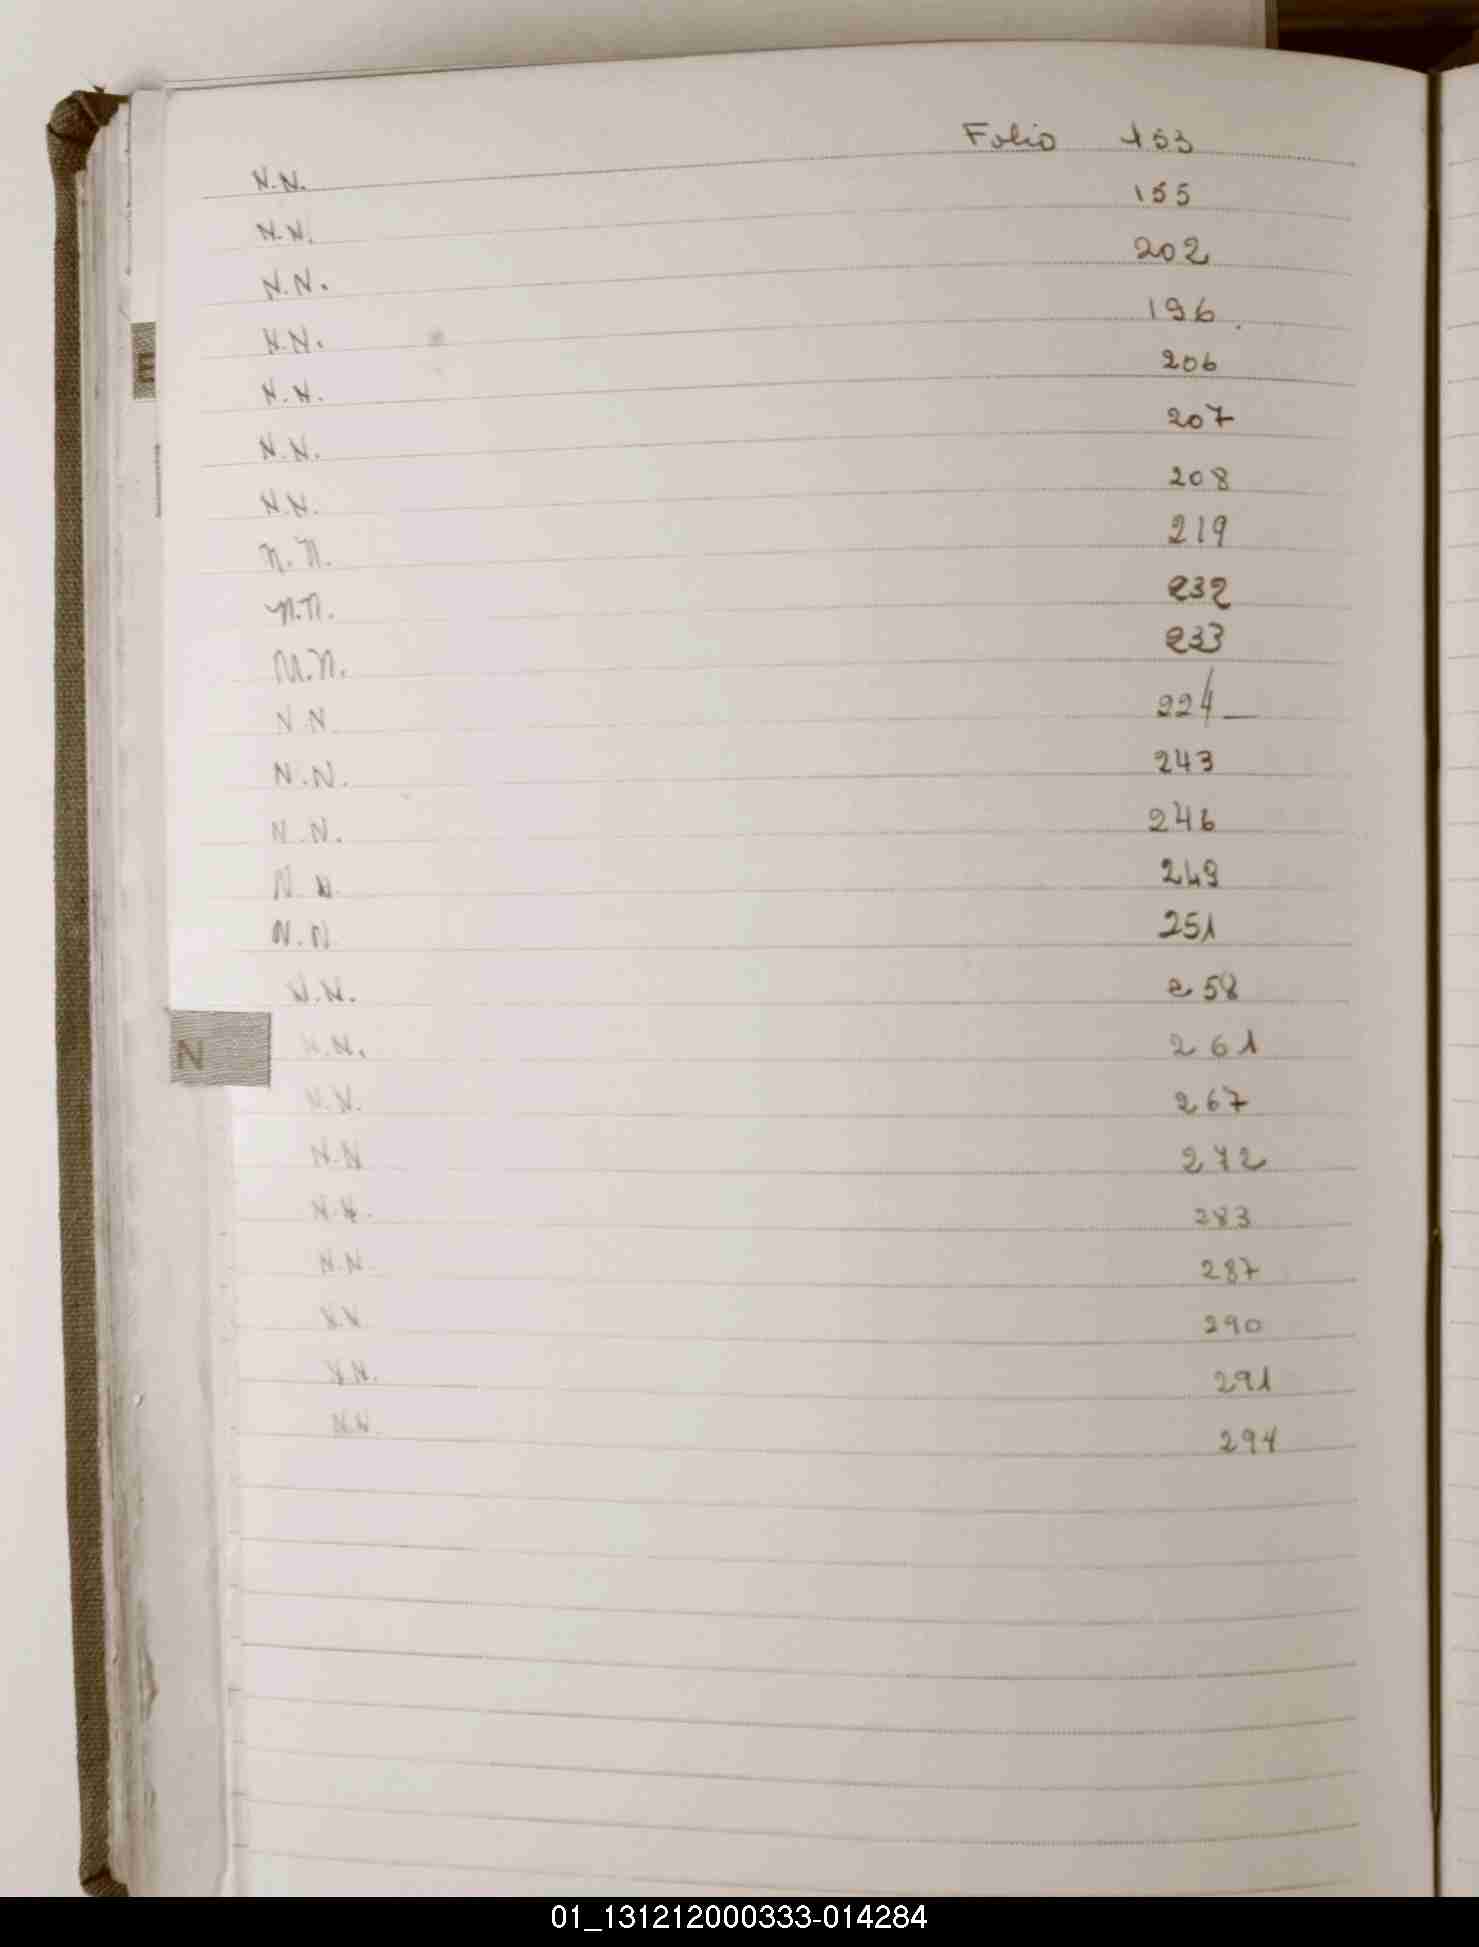 N.N. Folio 153
N.N. 155
N.N. 202
N.N. 196.
N.N. 206
N.N. 207
N.N. 208
n.n. 219
n.n. 232
M.n. 233
N N. 224
N.N. 243
N.N. 246
N.N. 249
N.N 251
N.N. 258
N
N.N. 261
N.N. 267
N.N 272
N.N. 283
N.N 287
N.N 290
N.N. 291
N.N. 294
E
01_131212000333-014284